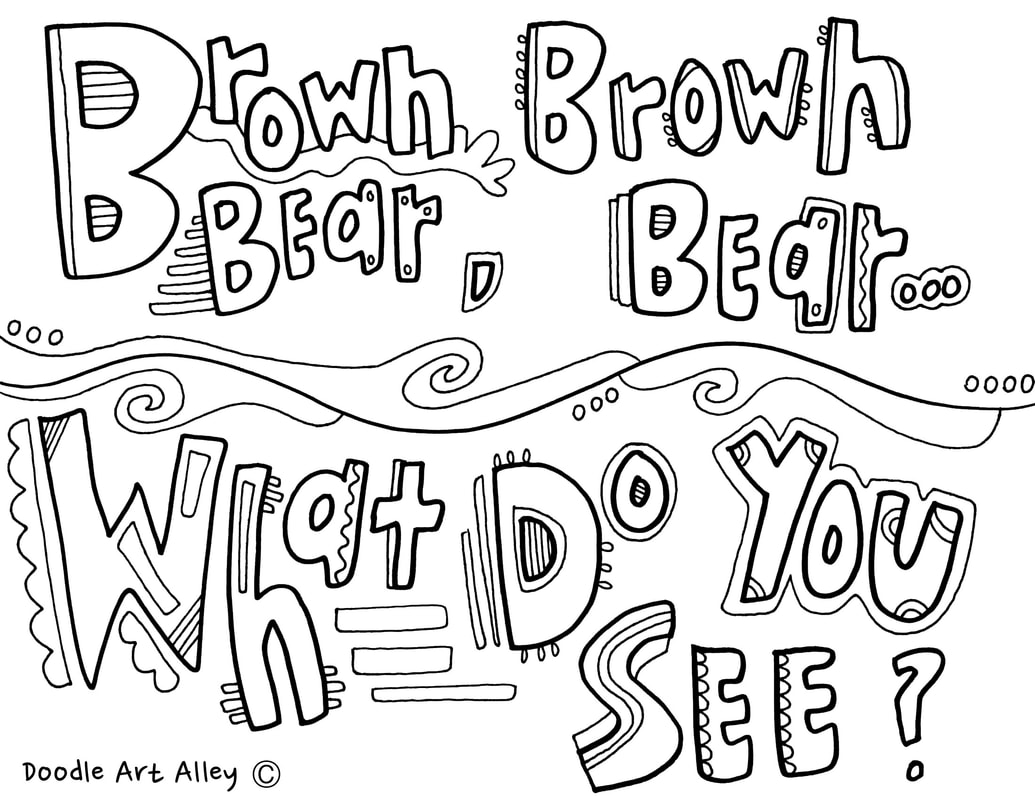 Brown Brown
Bear, Bear...
What Do You
See?
Doodle Art Alley ©